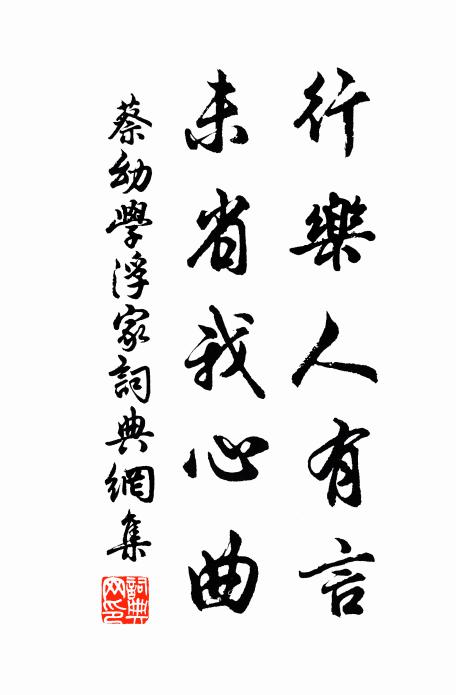 行樂人有言
未省我心曲
蔡幼學浮家詞典網集
詞典
网印